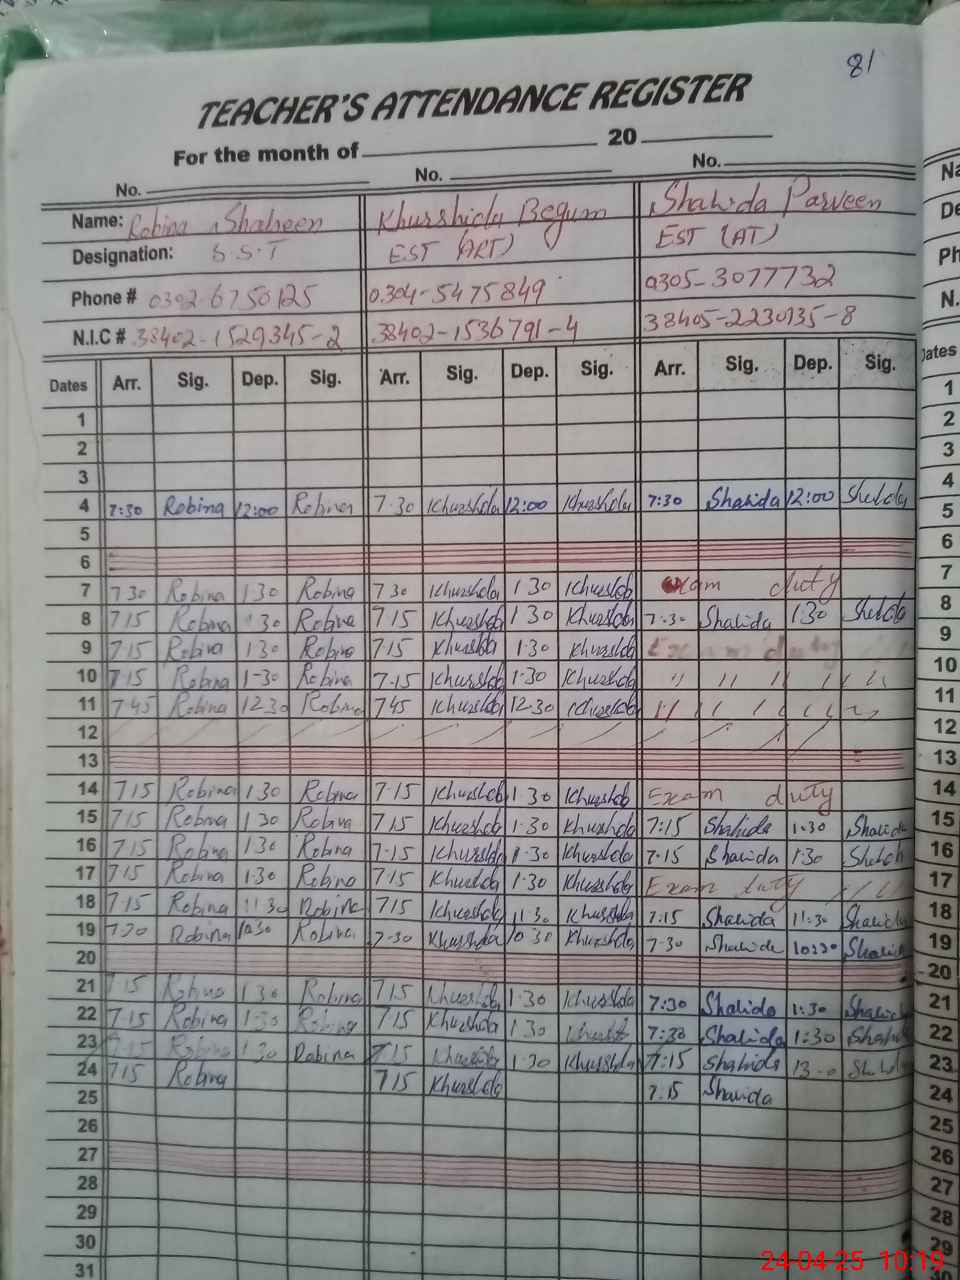 81
TEACHER'S ATTENDANCE REGISTER
For the month of 20
No. No. No.
Name: Robina Shaheen Khurshida Begum Shahida Parveen
Designation: S.S.T EST (ART) EST (AT)
Phone # 0302-6750125 0304-5475849 0305-3077732
N.I.C # 38402-1529345-2 38402-1536791-4 38405-2230135-8
Dates Arr. Sig. Dep. Sig. Arr. Sig. Dep. Sig. Arr. Sig. Dep. Sig. Dates
1 1
2 2
3 3
4 7:30 Robina 12:00 Robina 7.30 Khurshda 12:00 Khurshda 7:30 Shahida 12:00 4
5 5
6 6
7 7 30 Robina 1 30 Robina 7 30 Khurshda 1 30 Khurshda Exam duty 7
8 7 15 Robina 1 30 Robina 7 15 Khurshda 1 30 Khurshda 7-30 Shahida 1 30 8
9 7 15 Robina 1 30 Robina 7 15 Khurshda 1.30 Khurshda Exam duty 9
10 7 15 Robina 1-30 Robina 7-15 Khurshda 1-30 Khurshda " " " " " 10
11 7 45 Robina 12 30 Robina 7 45 Khurshda 12-30 Khurshda " 11
12 12
13 13
14 7 15 Robina 1 30 Robina 7-15 Khurshda 1 30 Khurshda Exam duty 14
15 7 15 Robina 1 30 Robina 7 15 Khurshda 1.30 Khurshda 7:15 Shahida 1.30 Shahida 15
16 7 15 Robina 1 30 Robina 7-15 Khurshda 1-30 Khurshda 7-15 Shahida 1:30 16
17 7 15 Robina 1-30 Robina 7 15 Khurshda 1.30 Khurshda Exam duty 17
18 7-15 Robina 11 30 Robina 7 15 Khurshda 11.30 Khurshda 7:15 Shahida 11:30 Shahida 18
19 7-30 Robina 10 30 Robina 7-30 Khurshda 10 30 Khurshda 7-30 Shahida 10:30 Shahida 19
20 20
21 7 15 Robina 1 30 Robina 7 15 Khurshda 1-30 Khurshda 7:30 Shahida 1:30 Shahida 21
22 7-15 Robina 1-30 Robina 7 15 Khurshda 1 30 7:30 Shahida 1:30 Shahida 22
23 7-15 Robina 1 30 Robina 7 15 Khurshda 1 30 Khurshda 7:15 Shahida 23
24 7 15 Robina 7 15 Khurshda 7.15 Shahida 24
25 25
26 26
27 27
28 28
29 29
30
31
24-04-25 10:19